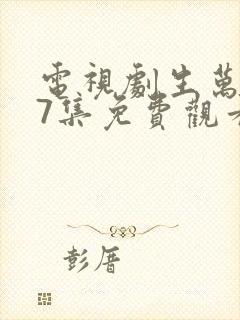 電視劇生萬
7集免費觀看
彭厝